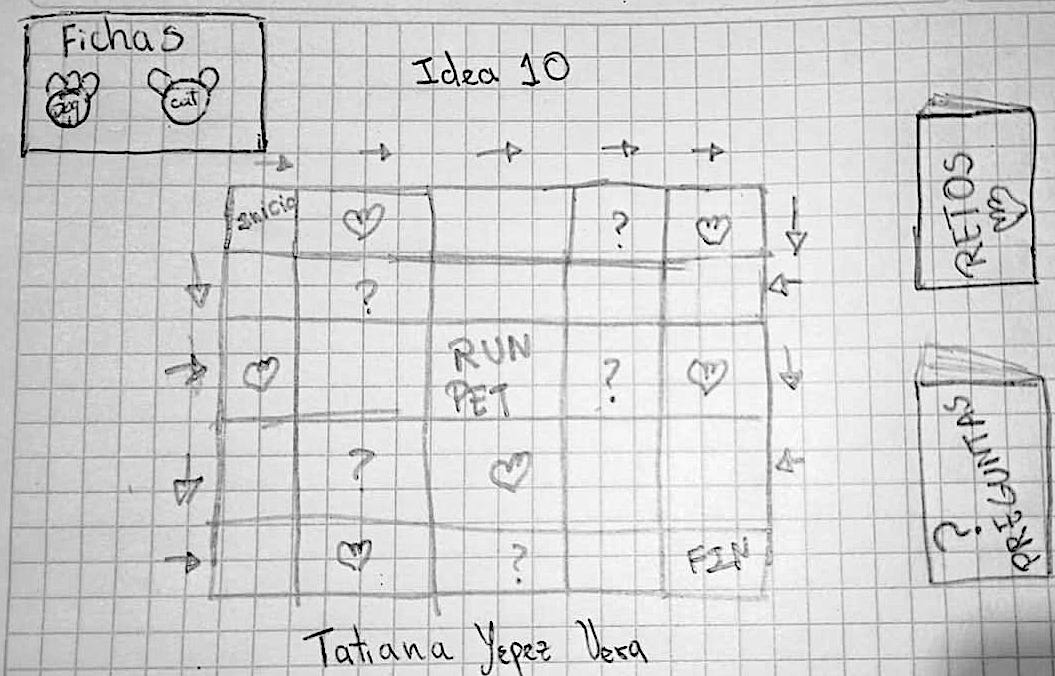 Fichas
Dog cat
Idea 10
Inicio
?
?
RUN
PET
?
?
?
FIN
RETOS
PREGUNTAS
?
Tatiana Yepez Vera